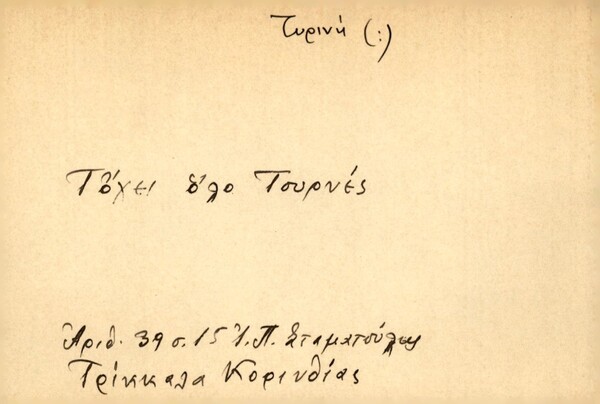 Τυρινή (:)
Τὄχει ὅλο Τσυρνές
Ἀριθ. 39 σ. 15 Ἰ. Π. Σταματούλης
Τρίκκαλα Κορινθίας